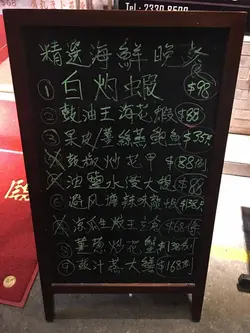 Tel: 2330 8500
精選海鮮晚餐
① 白灼蝦 $98
② 豉油王海花蝦 $88
③ 果皮/薑絲蒸鮑魚 $38
豉椒炒花甲 $88
油鹽水浸大蜆 $88
⑥ 避風塘辣味
涼瓜 $68
⑧ 薑蔥炒花蟹 $138
⑨ 豉汁蒸大鱔 $168
熙